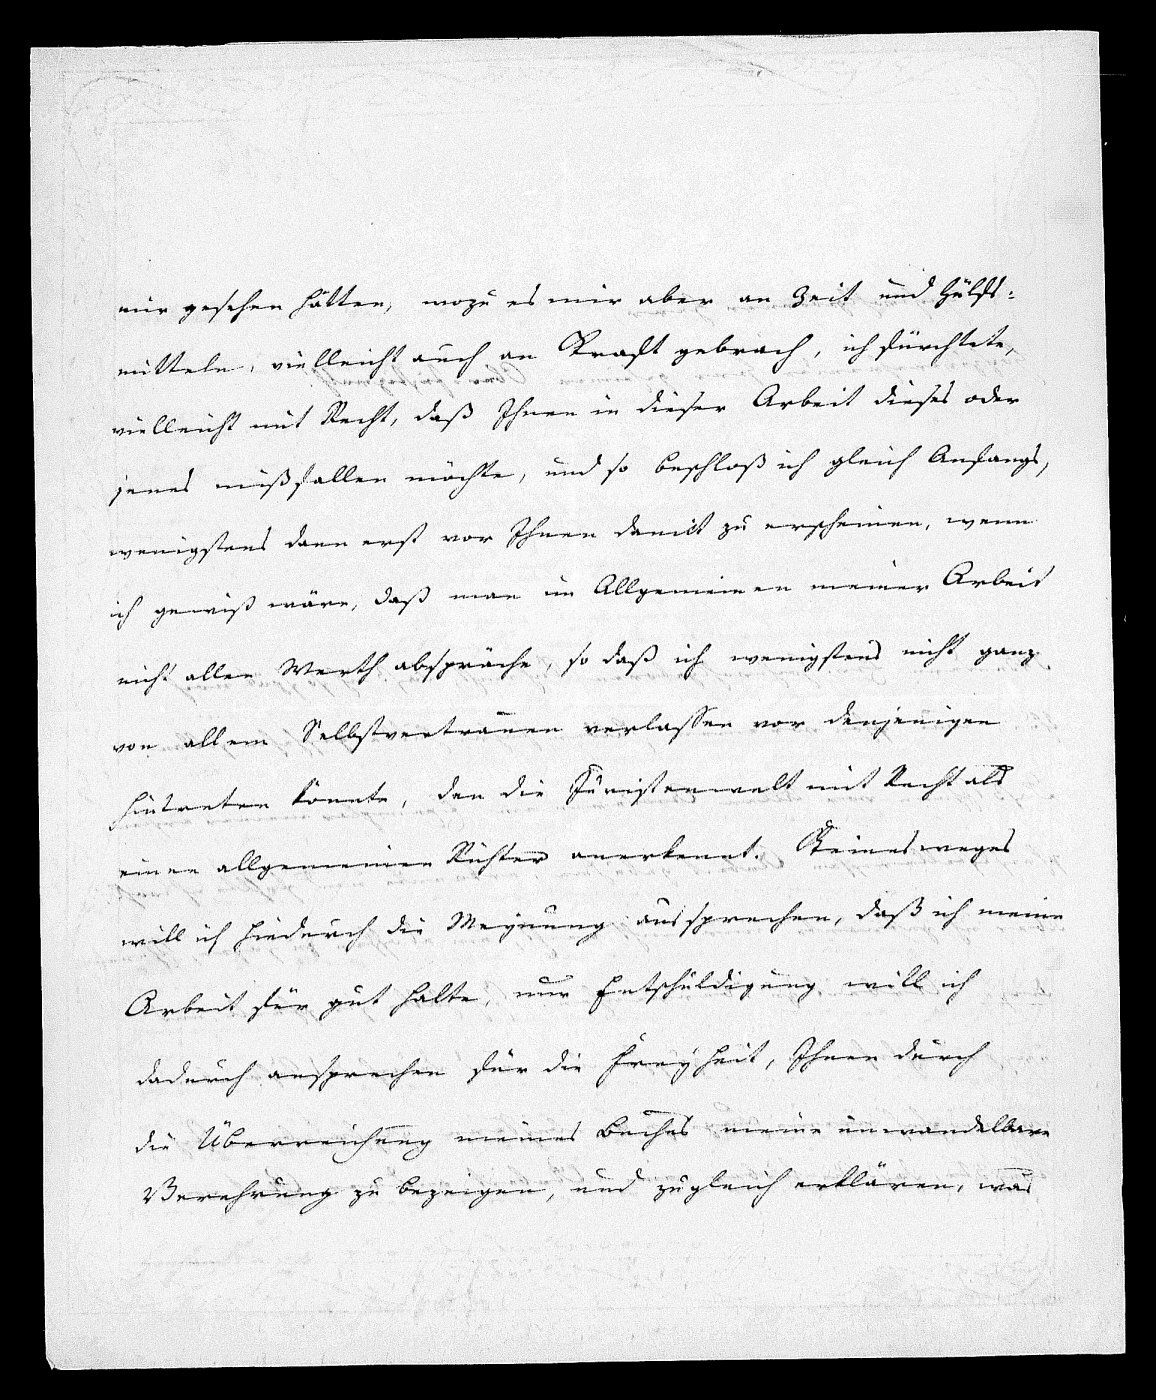 mir gesehen hätten, wozu es mir aber an Zeit und Hülfs-
mitteln, vielleicht auch an Kraft gebrach, ich fürchtete,
vielleicht mit Recht, daß Ihnen in dieser Arbeit dieses oder
jenes mißfallen möchte, und so beschloß ich gleich Anfangs,
wenigstens dann erst vor Ihnen damit zu erscheinen, wenn
ich gewiß wäre, daß man im Allgemeinen meiner Arbeit
nicht allen Werth abspräche, so daß ich wenigstens nicht ganz
von allem Selbstvertrauen verlassen vor denjenigen
hintreten könnte, den die Juristenwelt mit Recht als
einen allgemeinen Richter anerkennt. Keinesweges
will ich hiedurch die Meynung aussprechen, daß ich meine
Arbeit für gut halte, nur Entschuldigung will ich
dadurch ansprechen für die Freyheit, Ihnen durch
die Überreichung meines Buches meine unwandelbare
Verehrung zu bezeigen, und zugleich erklären, was